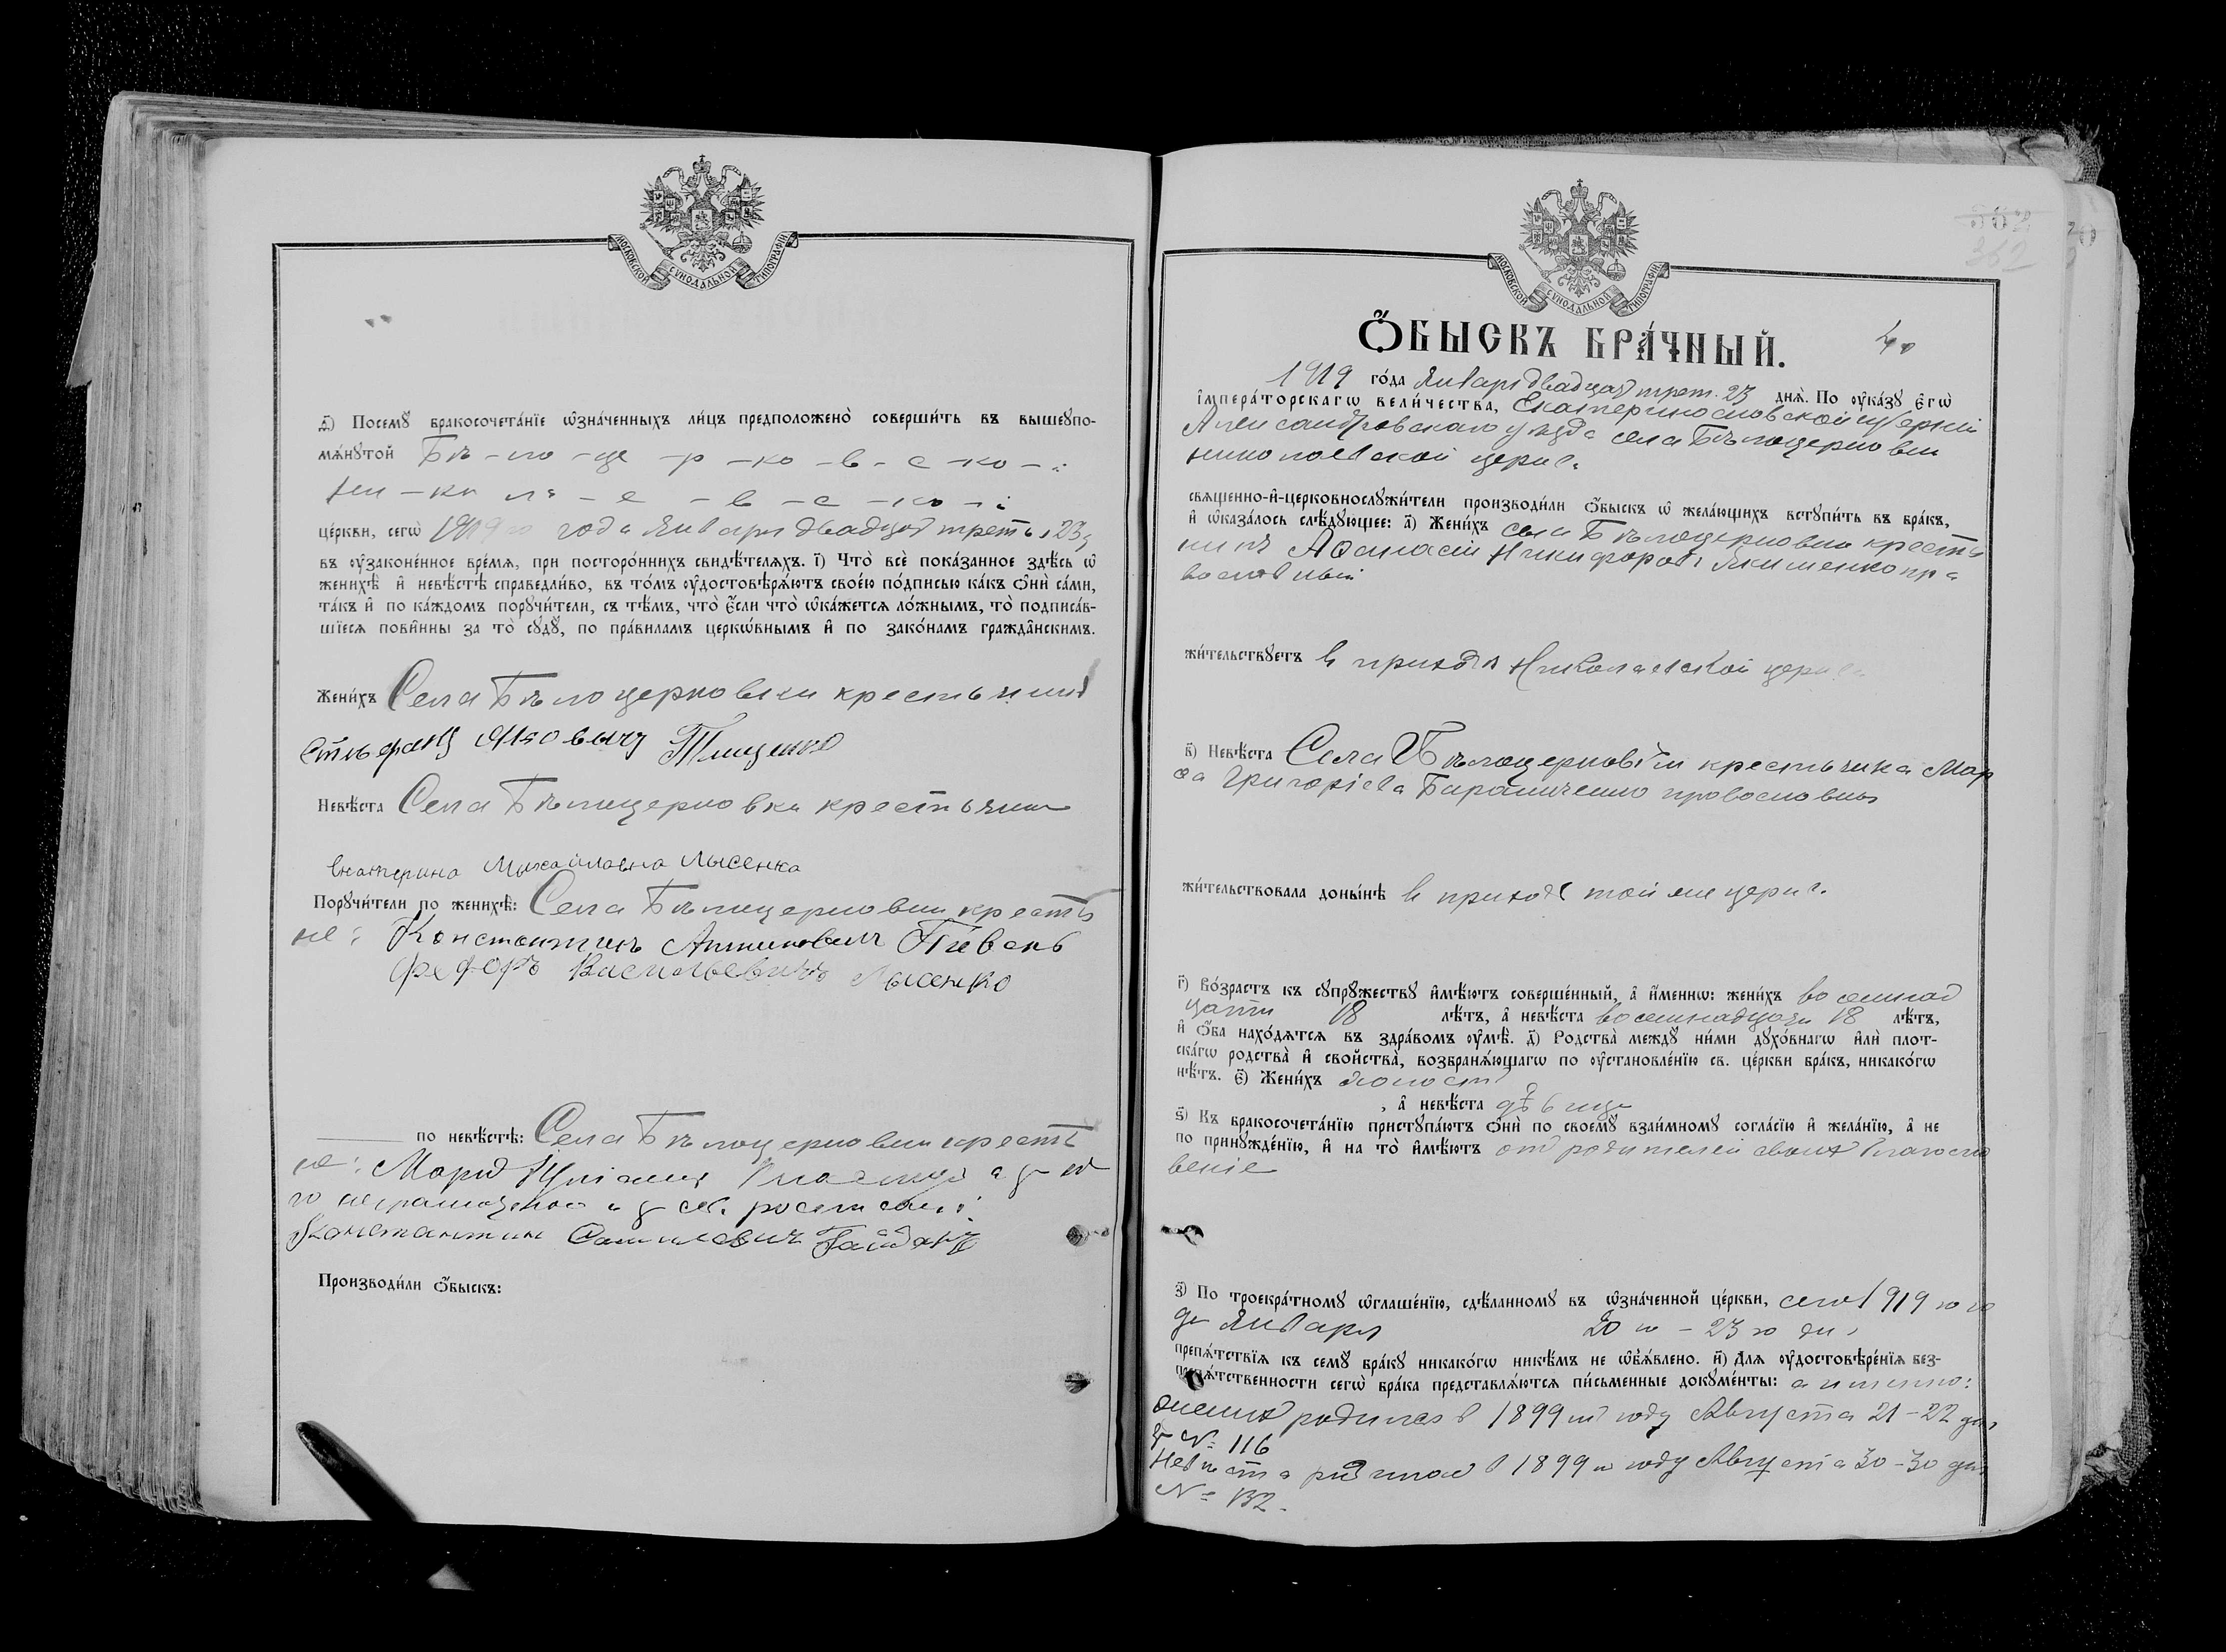 МОСКОВСКОЙ СѴНОДАЛЬНОЙ ТИПОГРАФІИ
д҃) Посемꙋ бракосочета́нїе ѡ҆зна́ченныхъ ли́цъ предположено̀ соверши́ть въ вышеꙋпо-
мѧ́нꙋтой Бѣ-ло-це-р-ко-в-с-ко-й
Ни-ко-ла-е-в-с-ко-й
це́ркви, сегѡ̀ 1919 го года Января двадцат третья 23
въ ᲂу҆зако́нё́нное вре́мѧ, при посторо́ннихъ свидѣ́телѧхъ. і҃) Что̀ всѐ пока́занное здѣ́сь ѡ҆
женихѣ̀ и҆ невѣ́стѣ справедли́во, въ то́мъ ᲂу҆достовѣрѧ́ютъ свое́ю по́дписью ка́къ ѻ҆нѝ са́ми,
та́къ и҆ по ка́ждомъ порꙋчи́тели, съ тѣ́мъ, что̀ є҆́сли что̀ ѡ҆ка́жетсѧ ло́жнымъ, то̀ подписа́в-
шїесѧ пови́нны за то̀ сꙋдꙋ̀, по пра́виламъ церкѡ́внымъ и҆ по зако́намъ гражда́нскимъ.
Жени́хъ Села Бѣлоцерковки крестьянин
Стѣфанъ Яковычъ Тищенко
Невѣ́ста Села Бѣлоцерковки крестьянка
Екатерина Михайловна Лысенка
Порꙋчи́тели по женихѣ̀: Села Бѣлоцерковки крестья
не: Константинъ Антиповичъ Пивень
Федоръ Васильевичъ Лысенко
по невѣ́стѣ: Села Бѣлоцерковки крестья
не: Марко а за не
го неграмотного и за себя росписался:
Константин Самилович Гайдакъ
Производи́ли ѻ҆́быскъ:
МОСКОВСКОЙ СѴНОДАЛЬНОЙ ТИПОГРАФІИ
352
362
ѺБЫСКЪ БРА́ЧНЫЙ.
40
1919 го́да Января двадцат трет. 23 днѧ̀. По ᲂу҆ка́зꙋ є҆гѡ̀
і҆мпера́торскагѡ вели́чества, Екатеринославской губерніи
Александровскаго уѣзда села Бѣлоцерковки
Николаевской церкви
свѧще́нно-и҆-церковнослꙋжи́тели производи́ли ѻ҆́быскъ ѡ҆ жела́ющихъ встꙋпи́ть въ бра́къ,
и҆ ѡ҆каза́лось слѣ́дꙋющее: а҃) Жени́хъ села Бѣлоцерковки крестья
нинъ Афанасій Никифоровъ Якименко пра
вославный
жи́тельствꙋетъ в приходѣ Николаевской церкви
в҃) Невѣ́ста Села Бѣлоцерковки крестьянка Мар
фа Григоріева Бараниченко православная
жи́тельствовала доны́нѣ в приходѣ той же церкв.
г҃) Во́зрастъ къ сꙋпрꙋ́жествꙋ и҆мѣ́ютъ соверше́нный, а҆ и҆́меннѡ: жени́хъ восемнад
цати 18 лѣ́тъ, а҆ невѣ́ста восемнадцати 18 лѣ́тъ,
и҆ ѻ҆́ба нахо́дѧтсѧ въ здра́вомъ ᲂу҆мѣ̀. д҃) Родства̀ междꙋ̀ ни́ми дꙋхо́внагѡ и҆лѝ плот-
ска́гѡ родства̀ и҆ сво́йства̀, возбранѧ́ющагѡ по ᲂу҆становле́нїю св. це́ркви бра́къ, никако́гѡ
нѣ́тъ. є҃) Жени́хъ холостъ
, а҆ невѣ́ста дѣвица
ѕ҃) Къ бракосочета́нїю пристꙋпа́ютъ ѻ҆нѝ по своемꙋ̀ взаи́мномꙋ согла́сїю и҆ жела́нїю, а҆ не
по принꙋжде́нїю, и҆ на то̀ и҆мѣ́ютъ от родителей своих благосло
веніе
з҃) По троекра́тномꙋ ѡ҆глаше́нїю, сдѣ́ланномꙋ въ ѡ҆зна́ченной це́ркви, сего 1919 го го
да Января 20 го – 23 го дня
препѧ́тствїѧ къ семꙋ̀ бра́кꙋ никако́гѡ никѣ́мъ не ѡ҆б̾ѧ́влено. и҃) Длѧ ᲂу҆достовѣре́нїѧ без-
препѧ́тственности сегѡ̀ бра́ка представлѧ́ютсѧ пи́сьменные докꙋме́нты: а именно:
Жених родился в 1899 м году Августа 21-22 дня
№ 116
Невѣста родилась в 1899 м году Августа 30-30 дня
№ 132.